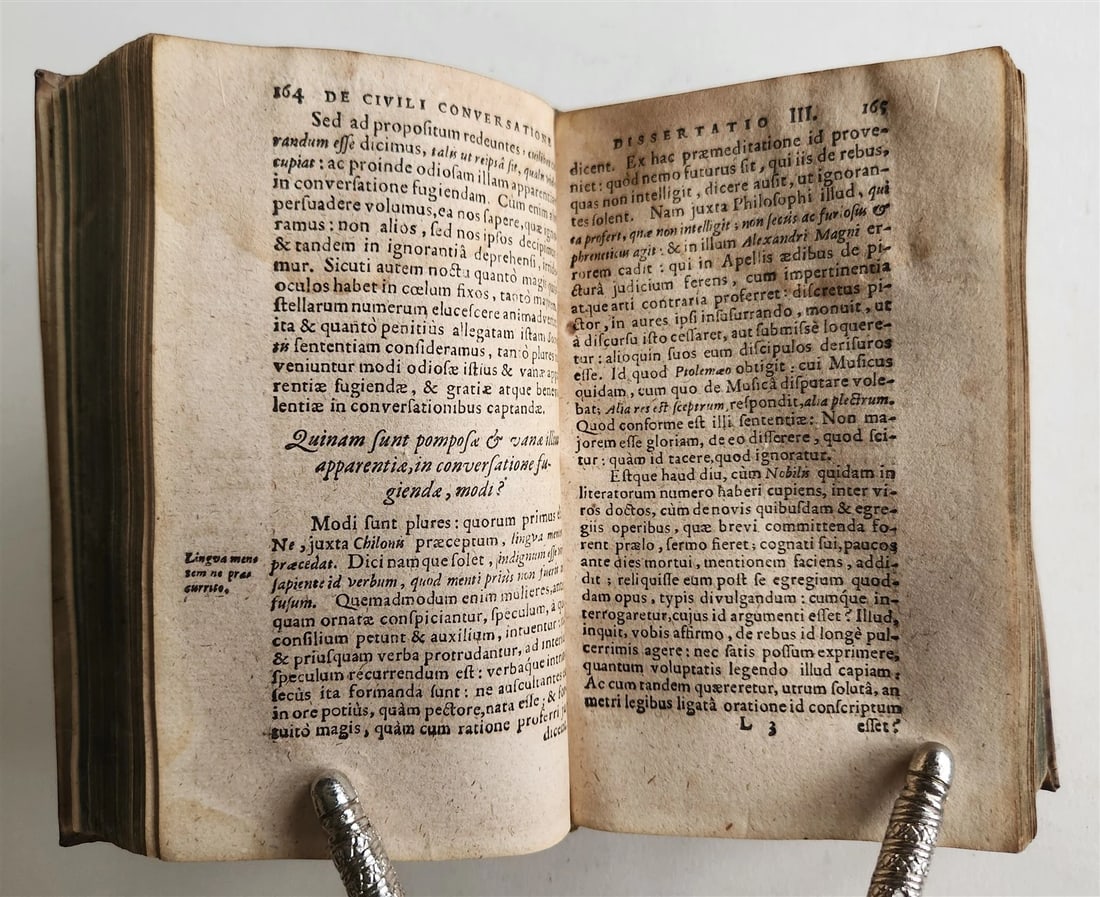 164 DE CIVILI CONVERSATIONE
Sed ad propositum redeuntes,
randum esse dicimus, talis ut reipsâ sit,
cupiat: ac proinde odiosam illam apparenti
in conversatione fugiendam. Cùm enim
persuadere volumus, ea nos sapere, quæ
ramus: non alios, sed nos ipsos decipim
& tandem in ignorantiâ deprehensi,
mur. Sicuti autem noctu quantò
oculos habet in cœlum fixos, tantò
stellarum numerum elucescere animadver
ita & quantò penitiùs allegatam istam
sententiam consideramus, tantò plures
veniuntur modi odiosæ istius & vanæ
rentiæ fugiendæ, & gratiæ atque bene
lentiæ in conversationibus captandæ.
Quinam sunt pomposæ & vanæ
apparentiæ, in conversatione fu-
giendæ, modi?
Modi sunt plures: quorum primus
Ne, juxta Chilonis præceptum, lingua
præcedat. Dici namque solet, indignum esse
sapiente id verbum, quod menti priùs non
fusum. Quemadmodum enim mulieres,
quàm ornatæ conspiciantur, speculum, à
consilium petunt & auxilium, intuentur:
& priusquam verba protrudantur, ad
speculum recurrendum est: verbaque
secùs ita formanda sunt: ne auscultantes
in ore potiùs, quàm pectore, nata esse; &
tuitò magis, quàm cum ratione proferri
Lingua men-
tem ne præ-
currito.
DISSERTATIO III. 165
dicent. Ex hac præmeditatione id prove-
niet: quòd nemo futurus sit, qui iis de rebus,
quas non intelligit, dicere ausit, ut ignoran-
tes solent. Nam juxta Philosophi illud, qui
ea profert, quæ non intelligit; non secùs ac furiosus &
phreneticus agit: & in illum Alexandri Magni er-
rorem cadit: qui in Apellis ædibus de pi-
cturâ judicium ferens, cum impertinentia
atque arti contraria proferret: discretus pi-
ctor, in aures ipsi insusurrando, monuit, ut
à discursu isto cessaret, aut submissè loquere-
tur: alioquin suos eum discipulos derisuros
esse. Id quod Ptolemæo obtigit: cui Musicus
quidam, cum quo de Musicâ disputare vole-
bat; Alia res est sceptrum, respondit, alia plectrum.
Quod conforme est illi sententiæ: Non ma-
jorem esse gloriam, de eo disserere, quod sci-
tur: quàm id tacere, quod ignoratur.
Estque haud diu, cùm Nobilis quidam in
literatorum numero haberi cupiens, inter vi-
ros doctos, cùm de novis quibusdam & egre-
giis operibus, quæ brevi committenda fo-
rent prælo, sermo fieret; cognati sui, paucos
ante dies mortui, mentionem faciens, addi-
dit; reliquisse eum post se egregium quod-
dam opus, typis divulgandum: cumque in-
terrogaretur, cujus id argumenti esset? Illud,
inquit, vobis affirmo, de rebus id longè pul-
cerrimis agere: nec satis possum exprimere,
quantum voluptatis legendo illud capiam.
Ac cum tandem quæreretur, utrum solutâ, an
metri legibus ligatâ oratione id conscriptum
L 3 esset?